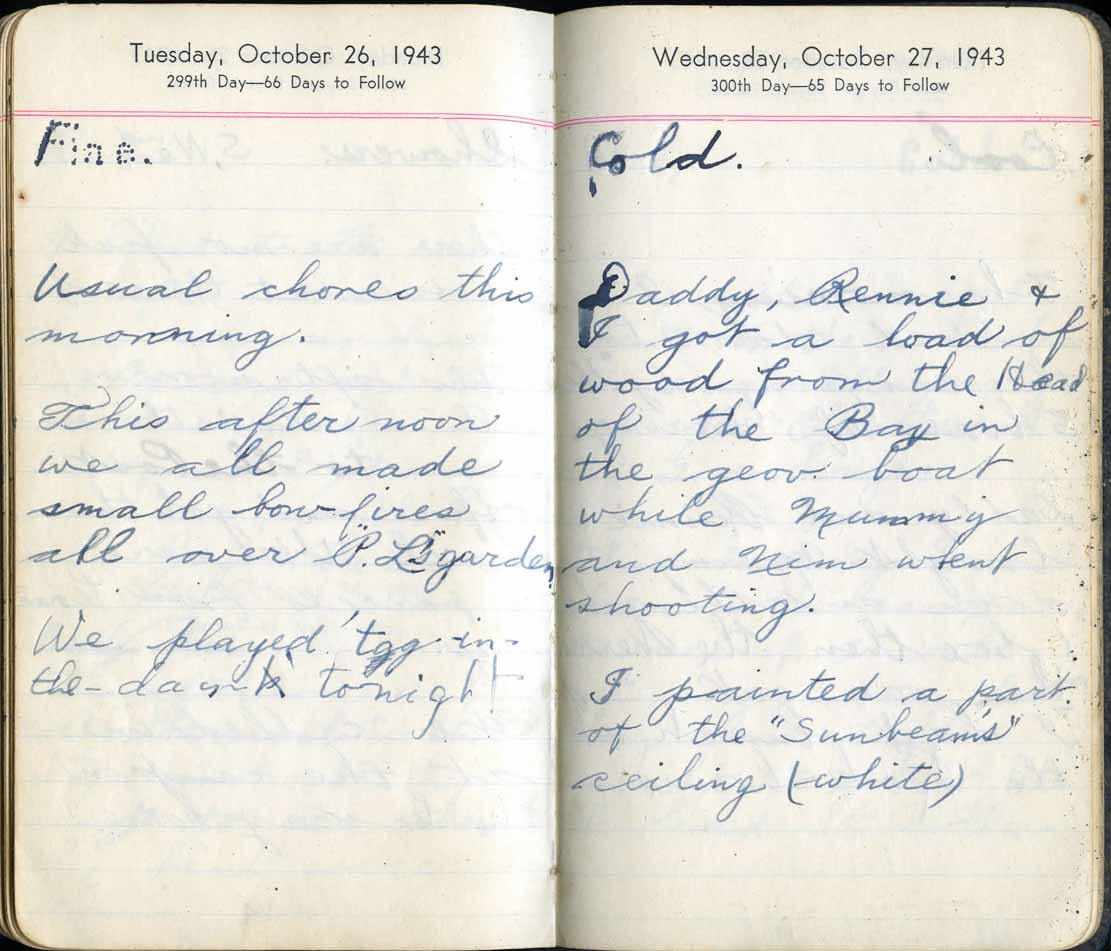 Tuesday, October 26, 1943
299th Day—66 Days to Follow
Fine.
Usual chores this
morning.
This after noon
we all made
small bon-fires
all over "P. L's" garden.
We played 'tag-in-
the-dark' tonight
Wednesday, October 27, 1943
300th Day—65 Days to Follow
Cold.
Daddy, Rennie &
I got a load of
wood from the Head
of the Bay in
the gov. boat
while Mummy
and Nim went
shooting.
I painted a part
of the "Sunbeam's"
ceiling (white)